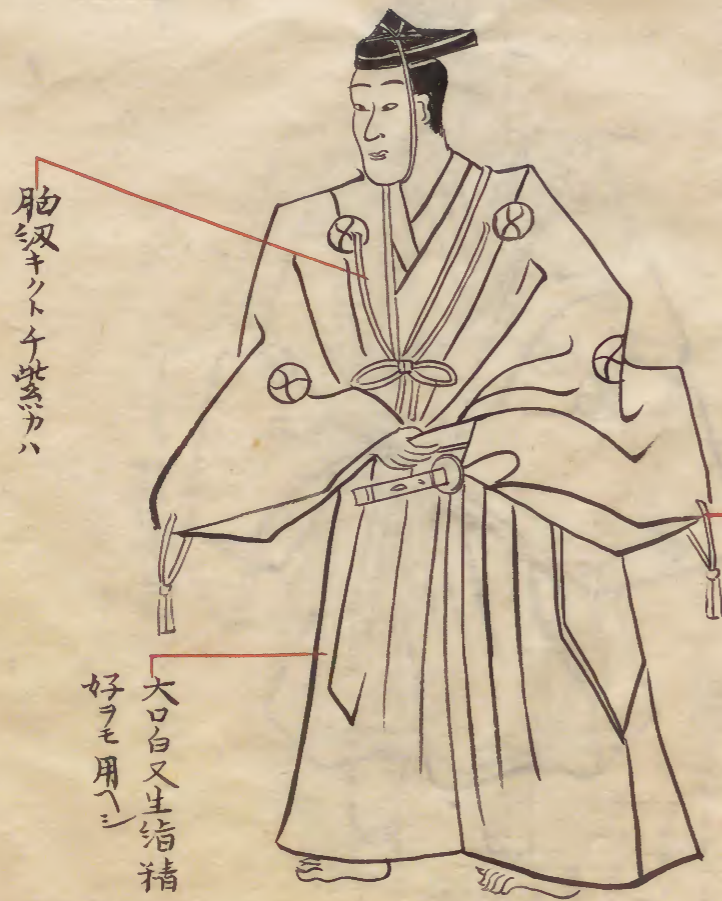 胸紐キクトチ紫カハ
大口白又生絹精
好ヲモ用ヘシ